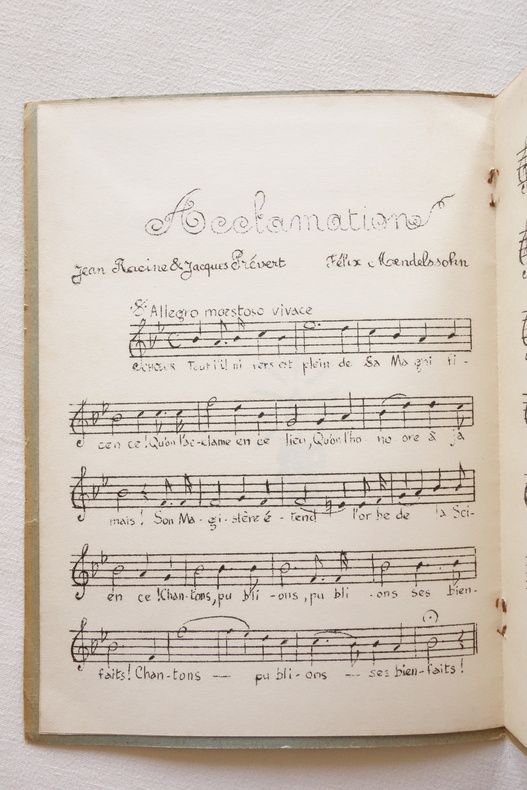 Acclamations
Jean Racine & Jacques Prévert Félix Mœndelssohn
Allegro mœstoso vivace
CHŒUR Tout l'U ni vers est plein de Sa Ma gni fi -
cen ce! Qu'on l'ac-clame en ce lieu, Qu'on l'ho no ore à ja
mais! Son Ma - gi - stère é - tend l'or be de la Sci-
en ce! Chan-tons, pu bli - ons, pu bli - ons ses bien-
faits! Chan-tons — pu bli - ons — ses bien-faits!